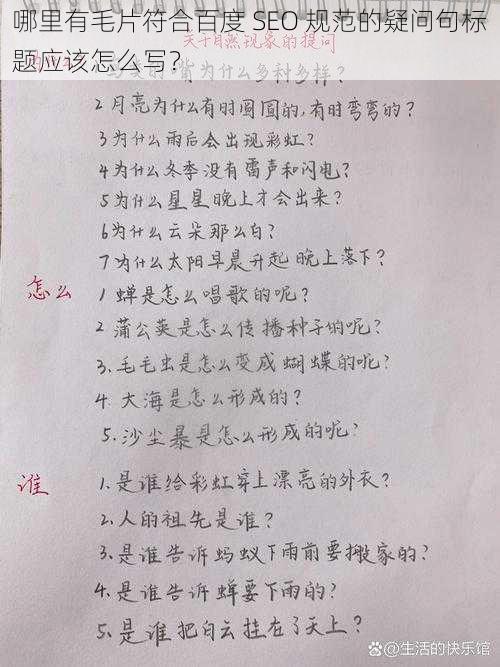 哪里有毛片符合百度 SEO 规范的疑问句标
题应该怎么写？
关于自然现象的提问
嘴为什么多种多样？
2 月亮为什么有时圆圆的，有时弯弯的？
3 为什么雨后会出现彩虹？
4 为什么冬季没有雷声和闪电？
5 为什么星星晚上才会出来？
6 为什么云朵那么白？
7 为什么太阳早晨升起 晚上落下？
怎么 1 蝉是怎么唱歌的呢？
2 蒲公英是怎么传播种子的呢？
3. 毛毛虫是怎么变成蝴蝶的呢？
4. 大海是怎么形成的？
5. 沙尘暴是怎么形成的呢？
谁 1. 是谁给彩虹穿上漂亮的外衣？
2. 人的祖先是谁？
3. 是谁告诉蚂蚁下雨前要搬家的？
4. 是谁告诉蝉要下雨的？
5. 是谁把白云挂在了天上？
@生活的快乐馆